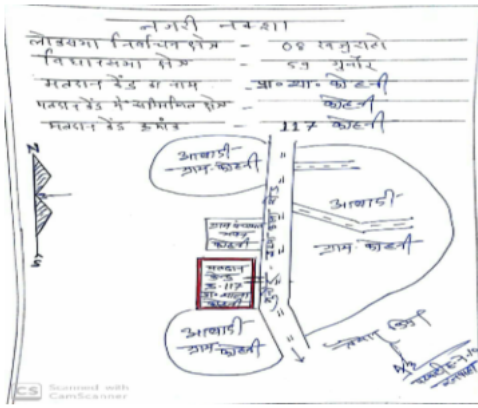 नगरी नक्शा
लोकसभा निर्वाचन क्षेत्र - 08 खजुराहो
विधानसभा क्षेत्र - 59 गुनौर
मतदान केंद्र का नाम - प्रा० शा० कोहनी
मतदान केंद्र में सम्मिलित क्षेत्र - कोहनी
मतदान केंद्र क्रमांक - 117 कोहनी
N
आबादी
ग्राम-कोहनी
आबादी
ग्राम-कोहनी
ग्राम पंचायत
भवन
कोहनी
मतदान
केन्द्र
क्र-117
प्रा० शाला
कोहनी
आबादी
ग्राम-कोहनी
S
CS Scanned with
CamScanner